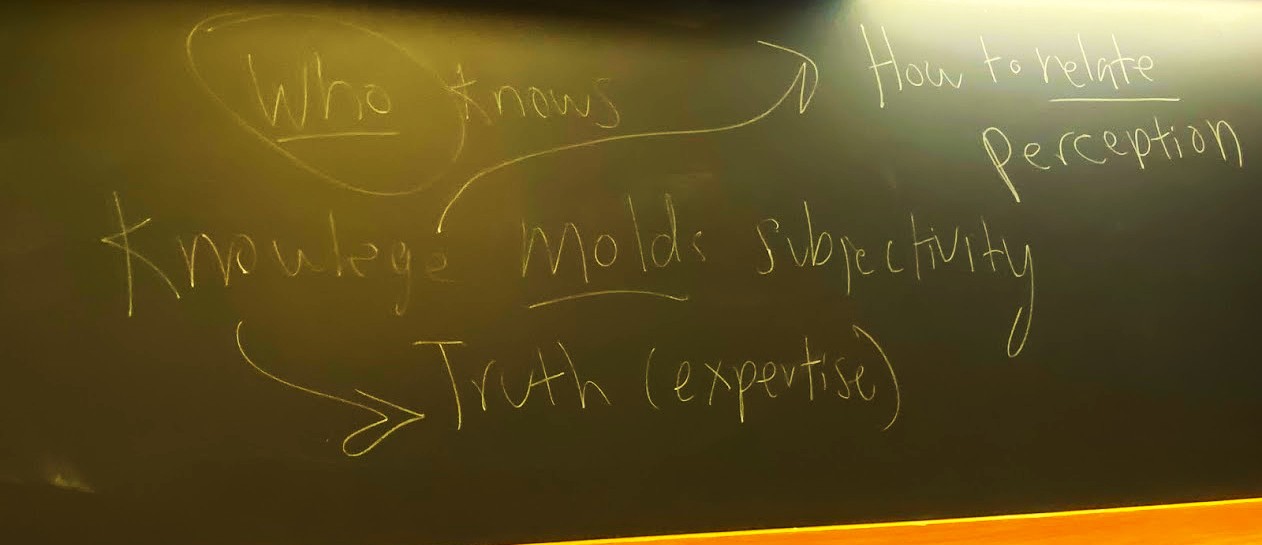 Who knows
How to relate
perception
Knowlege molds subjectivity
Truth (expertise)